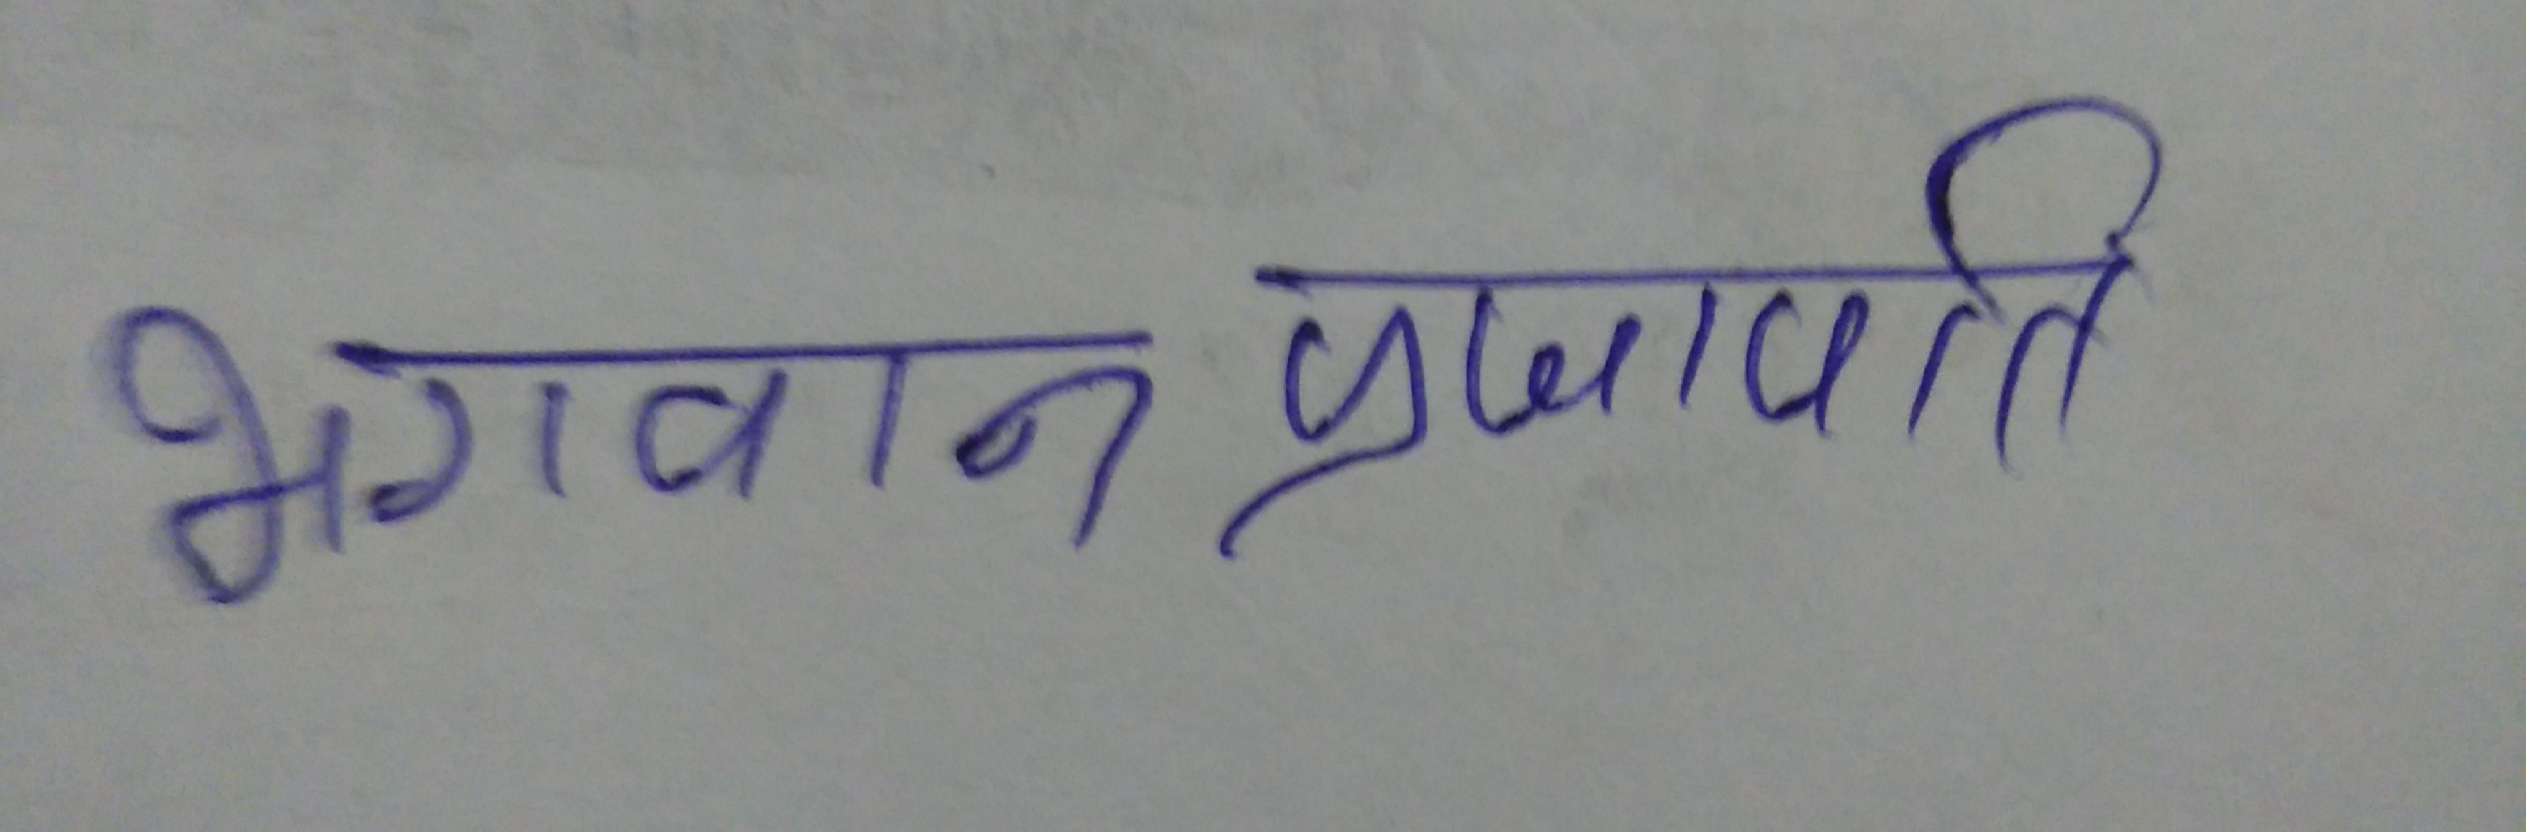 भगवान प्रजापति